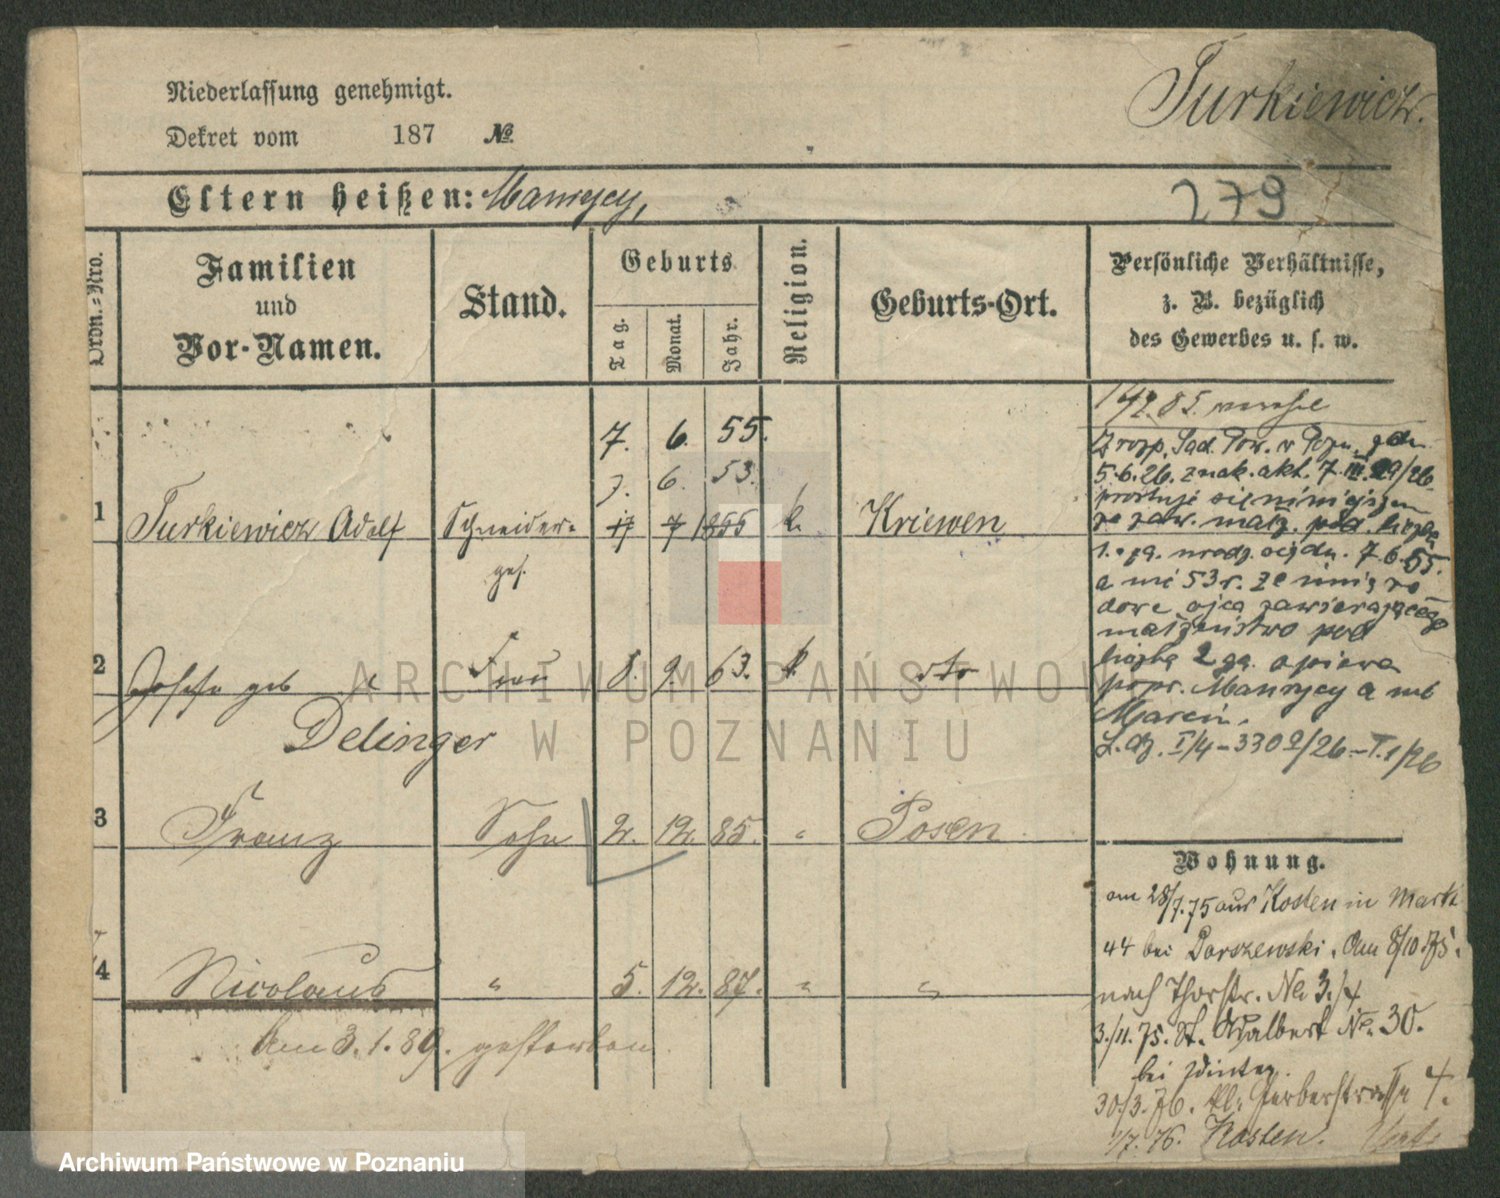 Turkiewicz.
Niederlassung genehmigt.
Dekret vom 187 No.
Eltern heißen: Maurycy,
279
Ordn.-Nro.
Familien
und
Vor-Namen.
Stand.
Geburts
Tag.
Monat.
Jahr.
Religion.
Geburts-Ort.
Persönliche Verhältnisse,
z. B. bezüglich
des Gewerbes u. s. w.
7. 6. 55.
7. 6. 53.
1 Turkiewicz Adolf Schneider- 17 7 1855 k. Kriewen
ges.
2 Josefa geb Frau 8. 9. 63. k. dto
Delinger
3 Franz Sohn 2. 12. 85. " Posen
4 Nicolaus " 5. 12. 87. " "
Am 3.1.89. gestorben
Z rozp. Sąd. Pow. w Pozn. z dn.
5.6.26. znak. akt. 7.III.29/26
prostuje się niniejszem
że zaw. małż. pod liczbą
1. urodz. się dn. 7.6.55.
a nie 53 r. że imię ro-
dowe ojca zawierającego
małżeństwo pod
liczbą 2 opiewa
popr. Maurycy a nie
Marcin.
L.dz. I/4-3302/26-T.1/26
Wohnung.
am 28/7.75 aus Kosten in Markt
44 bei Parszewski. Am 8/10.75.
nach Thorstr. No 3./4
3./11.75. St. Adalbert No. 30.
bei Winter.
30./3.76. kl. Gerberstrasse 4.
1/7.76. Kosten.
ARCHIWUM PAŃSTWOWE
W POZNANIU
Archiwum Państwowe w Poznaniu